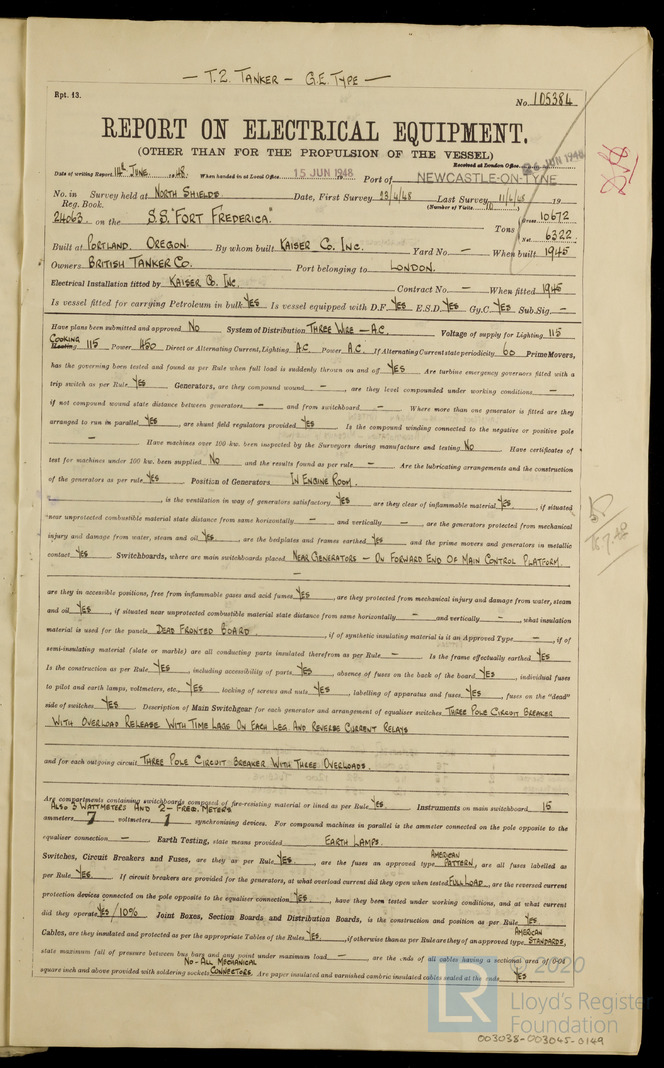 — T.2. TANKER — G.E. TYPE —
Rpt. 13.
No. 105384
REPORT ON ELECTRICAL EQUIPMENT.
(OTHER THAN FOR THE PROPULSION OF THE VESSEL)
Received at London Office 26 JUN 1948
Date of writing Report 14th JUNE 1948. When handed in at Local Office 15 JUN 1948 Port of NEWCASTLE-ON-TYNE
No. in Survey held at NORTH SHIELDS. Date, First Survey 23/4/48 Last Survey 11/6/48 19
Reg. Book. (Number of Visits 10)
24063. on the S.S. "FORT FREDERICA." Tons Gross 10672
Net 6322.
Built at PORTLAND. OREGON. By whom built KAISER CO. INC. Yard No. — When built 1945
Owners BRITISH TANKER CO. Port belonging to LONDON.
Electrical Installation fitted by KAISER CO. INC. Contract No. — When fitted 1945
Is vessel fitted for carrying Petroleum in bulk YES Is vessel equipped with D.F. YES E.S.D. YES Gy.C. YES Sub.Sig. —
Have plans been submitted and approved NO System of Distribution THREE WIRE — A.C. Voltage of supply for Lighting 115
COOKING
Heating 115 Power 450 Direct or Alternating Current, Lighting A.C. Power A.C. If Alternating Current state periodicity 60 Prime Movers,
has the governing been tested and found as per Rule when full load is suddenly thrown on and off YES Are turbine emergency governors fitted with a
trip switch as per Rule YES Generators, are they compound wound —, are they level compounded under working conditions —,
if not compound wound state distance between generators — and from switchboard — Where more than one generator is fitted are they
arranged to run in parallel YES, are shunt field regulators provided YES Is the compound winding connected to the negative or positive pole
— Have machines over 100 kw. been inspected by the Surveyors during manufacture and testing NO Have certificates of
test for machines under 100 kw. been supplied NO and the results found as per rule — Are the lubricating arrangements and the construction
of the generators as per rule YES Position of Generators IN ENGINE ROOM.
, is the ventilation in way of generators satisfactory YES are they clear of inflammable material YES, if situated
near unprotected combustible material state distance from same horizontally — and vertically —, are the generators protected from mechanical
injury and damage from water, steam and oil YES, are the bedplates and frames earthed YES and the prime movers and generators in metallic
contact YES Switchboards, where are main switchboards placed NEAR GENERATORS — ON FORWARD END OF MAIN CONTROL PLATFORM.
—
are they in accessible positions, free from inflammable gases and acid fumes YES, are they protected from mechanical injury and damage from water, steam
and oil YES, if situated near unprotected combustible material state distance from same horizontally — and vertically —, what insulation
material is used for the panels DEAD FRONTED BOARD., if of synthetic insulating material is it an Approved Type —, if of
semi-insulating material (slate or marble) are all conducting parts insulated therefrom as per Rule — Is the frame effectually earthed YES
Is the construction as per Rule YES, including accessibility of parts YES, absence of fuses on the back of the board YES, individual fuses
to pilot and earth lamps, voltmeters, etc. YES locking of screws and nuts YES, labelling of apparatus and fuses YES, fuses on the "dead"
side of switches YES Description of Main Switchgear for each generator and arrangement of equaliser switches THREE POLE CIRCUIT BREAKER
WITH OVERLOAD RELEASE WITH TIME LAGS ON EACH LEG AND REVERSE CURRENT RELAYS
and for each outgoing circuit THREE POLE CIRCUIT BREAKER WITH THREE OVERLOADS.
Are compartments containing switchboards composed of fire-resisting material or lined as per Rule YES Instruments on main switchboard 15
ALSO 3 WATTMETERS AND 2 - FREQ. METERS
ammeters 7 voltmeters 1 synchronising devices. For compound machines in parallel is the ammeter connected on the pole opposite to the
equaliser connection — Earth Testing, state means provided EARTH LAMPS.
Switches, Circuit Breakers and Fuses, are they as per Rule YES, are the fuses an approved type AMERICAN PATTERN, are all fuses labelled as
per Rule YES If circuit breakers are provided for the generators, at what overload current did they open when tested FULL LOAD, are the reversed current
protection devices connected on the pole opposite to the equaliser connection YES, have they been tested under working conditions, and at what current
did they operate YES/10% Joint Boxes, Section Boards and Distribution Boards, is the construction and position as per Rule YES
Cables, are they insulated and protected as per the appropriate Tables of the Rules YES, if otherwise than as per Rule are they of an approved type AMERICAN STANDARDS,
state maximum fall of pressure between bus bars and any point under maximum load —, are the ends of all cables having a sectional area of 0·04
NO - ALL MECHANICAL
square inch and above provided with soldering sockets CONNECTORS. Are paper insulated and varnished cambric insulated cables sealed at the ends YES
© 2020
LR
Lloyd's Register
Foundation
003038-003045-0149